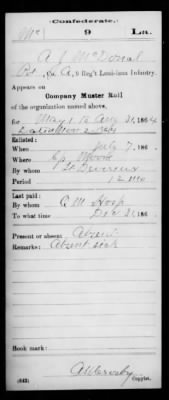 Confederate.
Mc 9 La.
A J McDonal
Pvt, Co. A, 9 Reg't Louisiana Infantry.
Appears on
Company Muster Roll
of the organization named above,
for May 1 to Aug 31, 1864
Enlisted:
When July 7, 186
Where Cp. Moore
By whom
Period 12 mo
Last paid:
By whom
To what time Dec 31, 186
Present or absent Absent
Remarks: Absent sick
Book mark:
(642) Copyist.